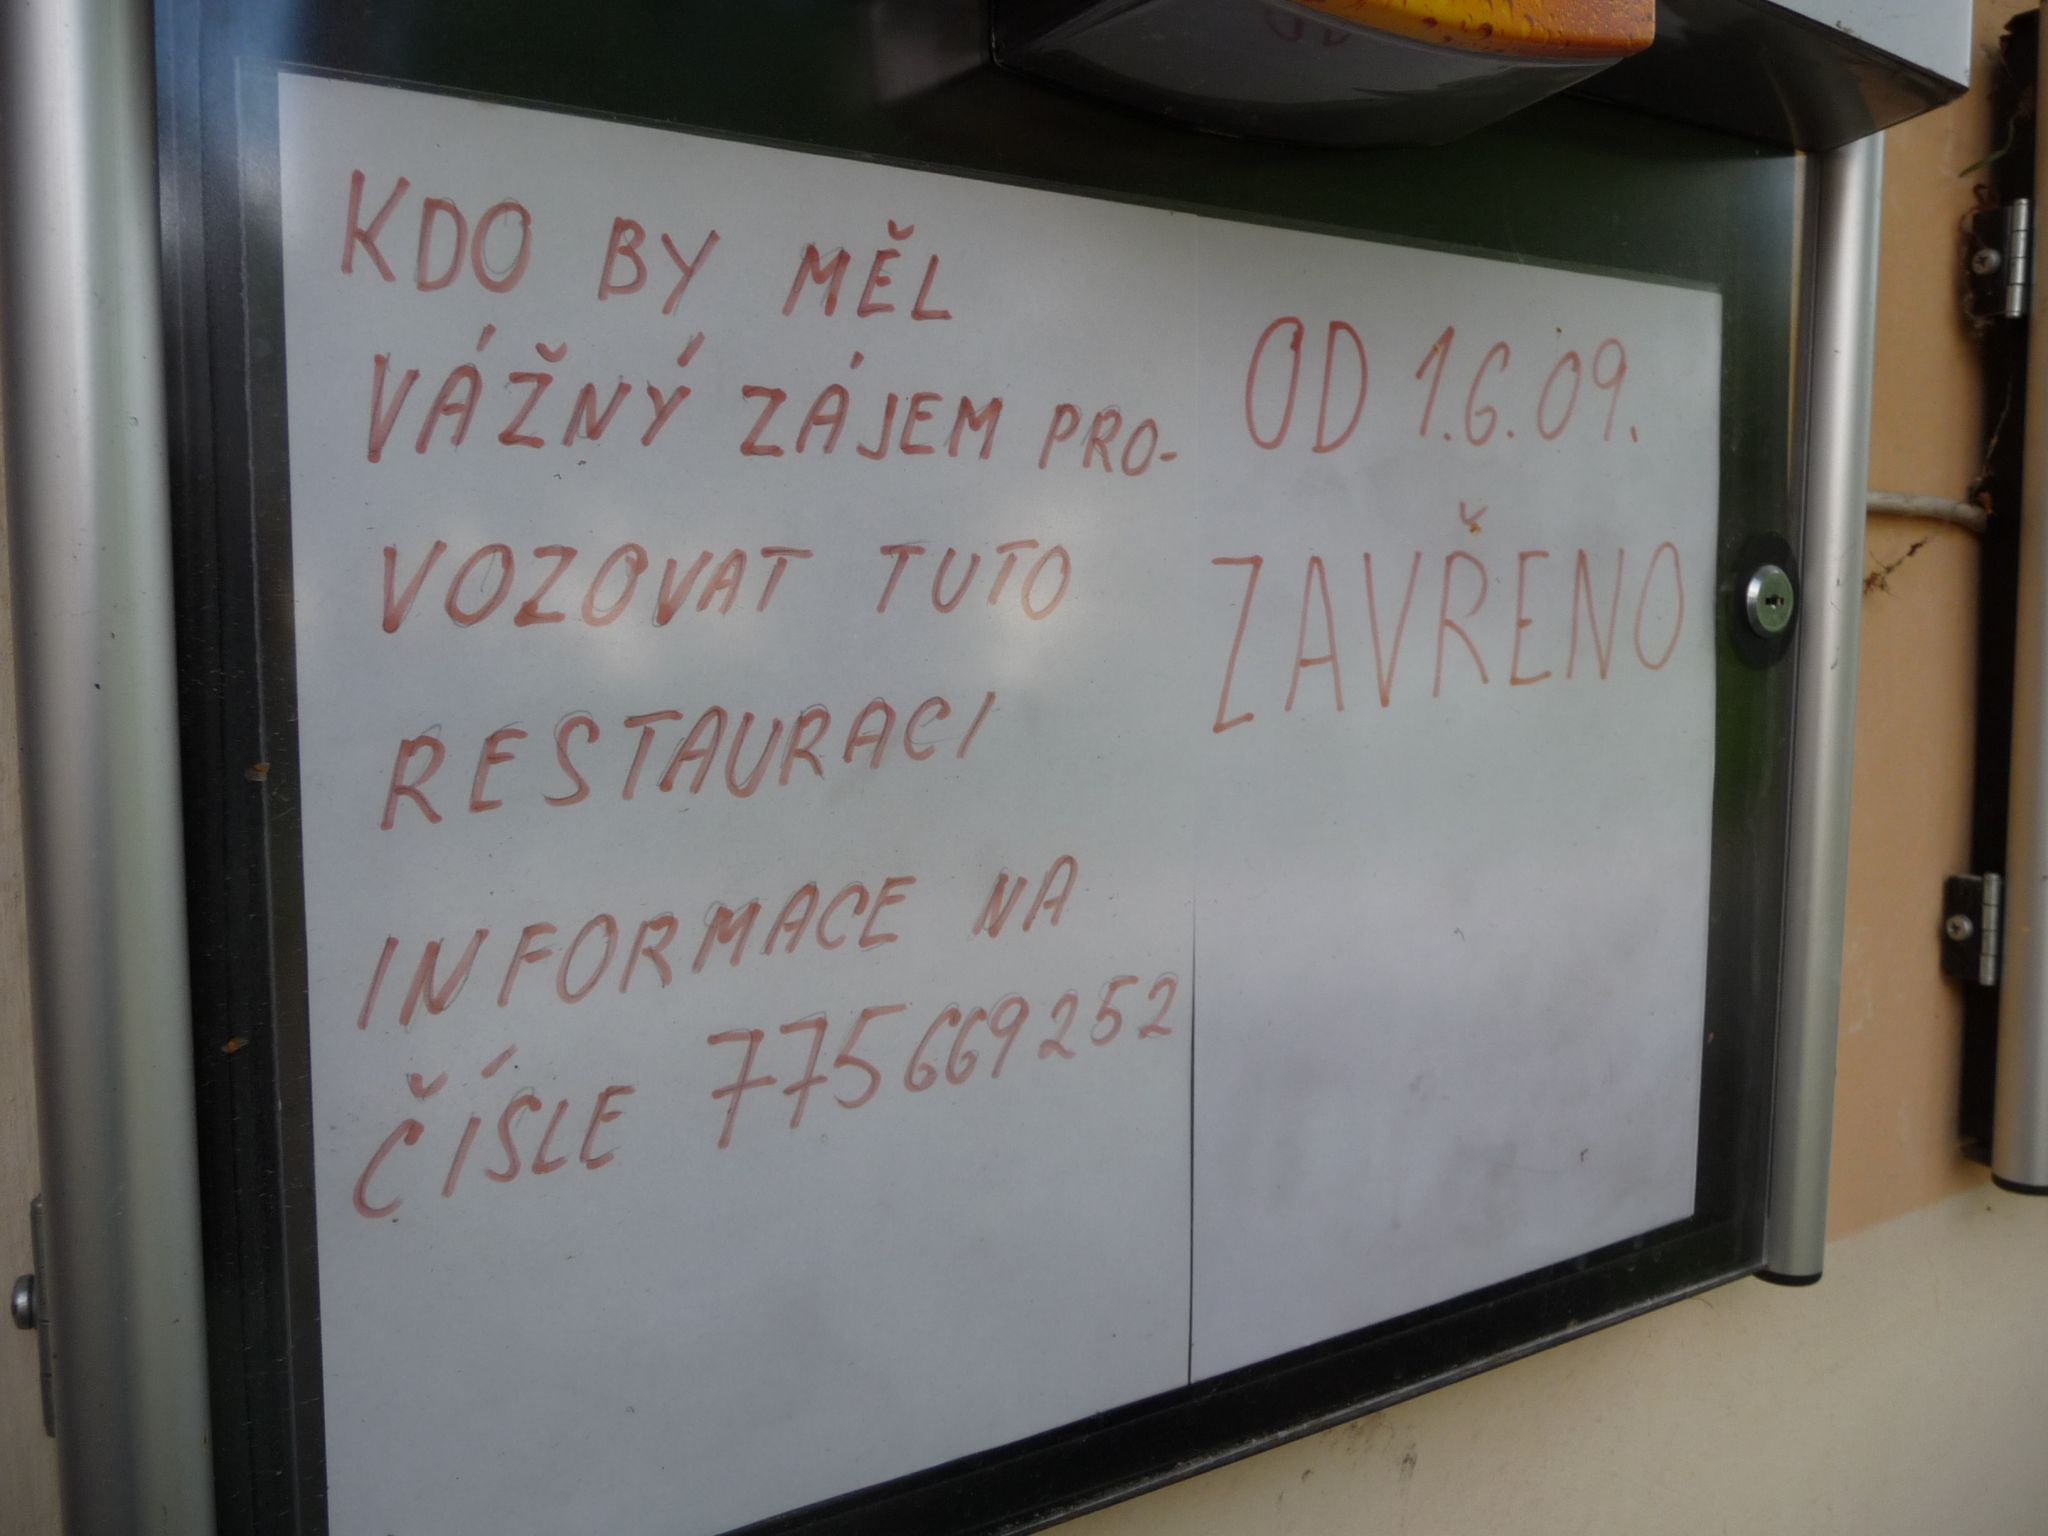 KDO BY MĚL
VÁŽNÝ ZÁJEM PRO-
VOZOVAT TUTO
RESTAURACI
INFORMACE NA
ČÍSLE 775669252
OD 1.6.09.
ZAVŘENO